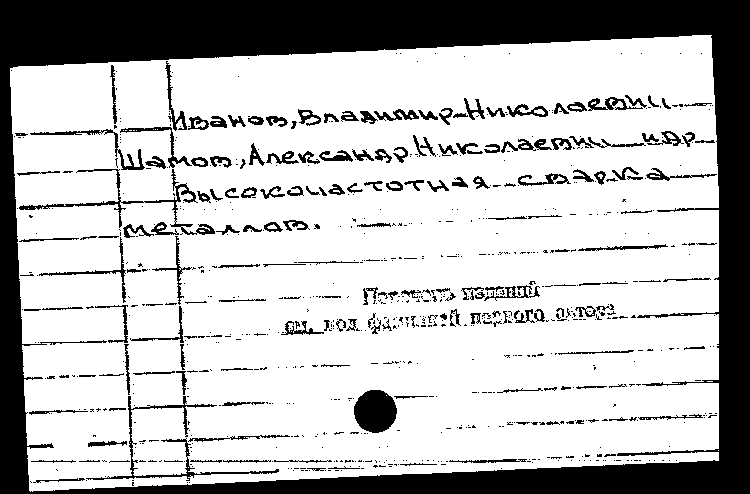 Иванов, Владимир Николаевич
Шамов, Александр Николаевич и др
Высокочастотная сварка
металлов.
Перечень изданий
см. под фамилией первого автора